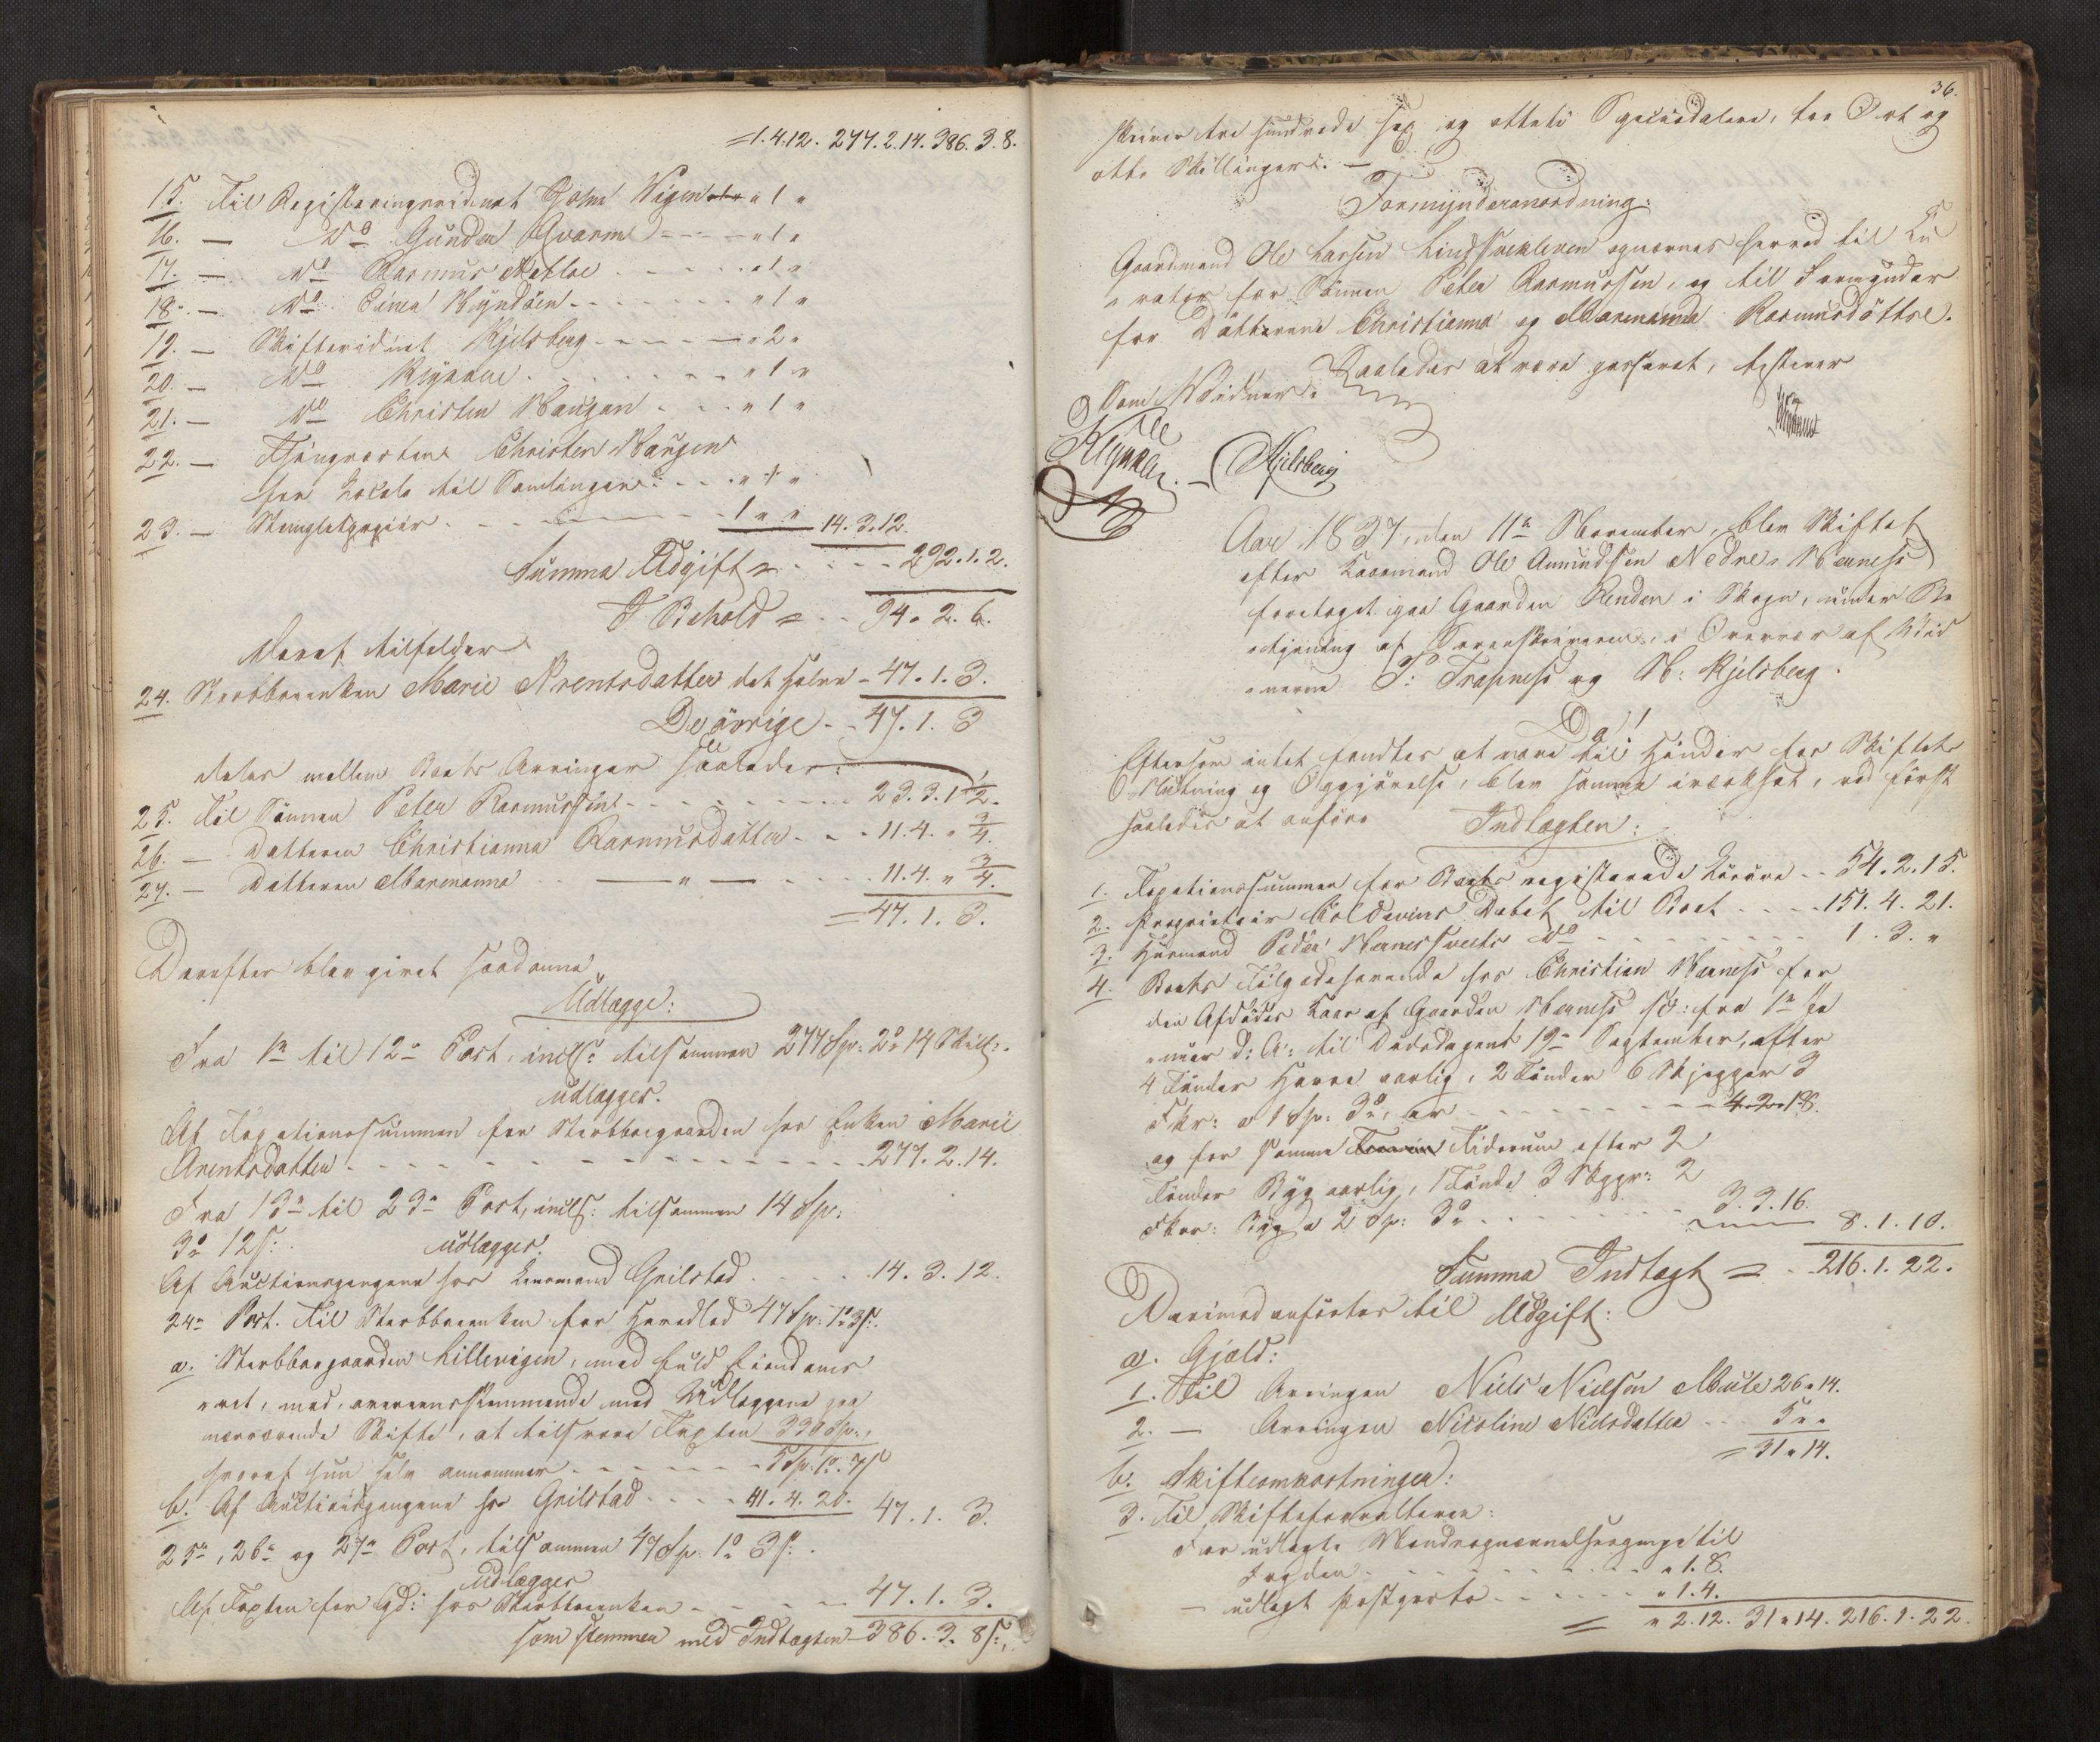 =1.4.12. 277.2.14. 386.3.8.
15. Til Registeringsvidnet John Vigen " 1 "
16. — do Gunder Qvarme - - - " 1 "
17. — do Rasmus - - - " 1 "
18. — do Einer - - - " 1 "
19. — Skiftevidnet Kjelsberg - - - " 2 "
20. — do Rynnen - - - " 1 "
21. — do Christen Haugan - - - " 1 "
22. — Christen Haugen
for Locale til Samlingen - - - " 1 "
23. — Stempletpapiir - - - 1 " " 14.3.12.
Summa Udgift = - - - 292.1.2.
I Behold = - - 94. 2. 6.
deraf tilfalder
24. Sterbboenken Marie Arentsdatter det halve - 47. 1. 3.
De övrige - - 47. 1. 3
deles mellem Boets Arvinger saaledes:
25. Til Sönnen Peter Rasmussen - - - 23. 3. 1 1/2.
26. — Datteren Christianna Rasmusdatter - - - 11. 4. " 3/4.
27. — Datteren Marenanna — " — 11. 4. " 3/4.
= 47. 1. 3.
Derefter blev givet saadanne
Udlægge:
Fra 1n til 12n Post, incls: tilsammen 277 Sp: 2o 14 Skill:
udlægges.
Af Taxationssummen for Sterbboegaarden hos Enken Marie
Arentsdatter - - - 277. 2. 14.
Fra 13n til 23n Post, incls: tilsammen 14 Sp:
3o 12 s: udlægges.
Af Auctionspengene hos Lensmand Grilstad - - - 14. 3. 12.
24n Post. Til Sterbboenken for Hovedlod 47 Sp: 1o 3 s:
a. Sterbboegaarden Lillevigen, med fuld Eiendoms
"ret, mod, overeensstemmende med Udlæggene paa
nærværende Skifte, at tilsvare Taxten 330 Sp:,
hvoraf hun selv annammer - - - 5 Sp: 1o. 7 s
b. Af Auctionspengene hos Grilstad - - - 41. 4. 20. 47. 1. 3.
25n, 26n og 27n Post, tilsammen 47 Sp. 1o 3 s:
udlægges
Af Taxten for Gd: hos Sterbboenken - - - 47. 1. 3.
som stemmer med Indtægten - 386. 3. 8 s:,
36.
skriver tre hundrede sex og otteti Speciedaler, tre Ort og
otte Skillinger. —
Formynderanordning:
Gaardmand Ole Larsen opnævnes herved til Cu
"rator for Sönnen Peter Rasmussen, og til Formynder
for Döttrene Christianna og Marenanna Rasmusdöttre.
Saaledes at være passeret, testerer
Som Vidner:
Rynnen. — Kjelsberg
Aar 1837, den 11n November, blev Skiftet
efter Kaarmand Ole Amundsen Nedre-Værness
foretaget paa Gaarden Renden i Skogn, under Be
"tjening af Sorenskriveren, i Overvær af Vid
"nerne P: Trapness og N: Kjelsberg.
Da!
Eftersom intet fandtes at være til Hinder for Skiftets
Slutning og Opgjörelse, blev samme iværksat, ved först
saaledes at anföre Indtægten:
1. Taxationssummen for Boets registerede Löseöre - - 54. 2. 15.
2. Proprietair Coldevins Debet til Boet - - - 151. 4. 21.
3. Huusmand Peder do - - - 1. 3. "
4. Boets Tilgodehavende hos Christian Værness for
den Afdödes Kaar af Gaarden Værness for: fra 1n Ja
"nuar d: A: til Dödsdagen 19n September, efter
4 Tönder Havre aarlig, 2 Tönder 6 Skjepper 3
Fkr: a 1 Sp: 3o, er - - - 4. 2. 18.
og for samme Tidsrum efter 2
Tönder Byg aarlig, 1 Tönde 3 Skppr: 2
Fkr: Byg a 2 Sp: 3o - - - 3. 3. 16. 8. 1. 10.
Summa Indtægt = - - 216. 1. 22.
Derimod anförtes til Udgift:
a. Gjæld:
1. Til Arvingen Niels Nielsen Mule 26 " 14.
2. — Arvingen Nicoline Nielsdatter - - 5 " "
= 31 " 14.
b. Skifteomkostninger:
3. Til Skifteforvalteren:
For udlagte til
Fogden - - - " 1. 8.
— udlagt Postporto - - - " 1. 4.
= " 2. 12. 31 " 14. 216. 1. 22.